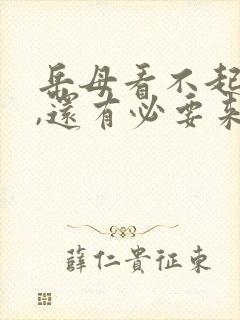 岳母看不起
,還有必要來
薛仁貴征東